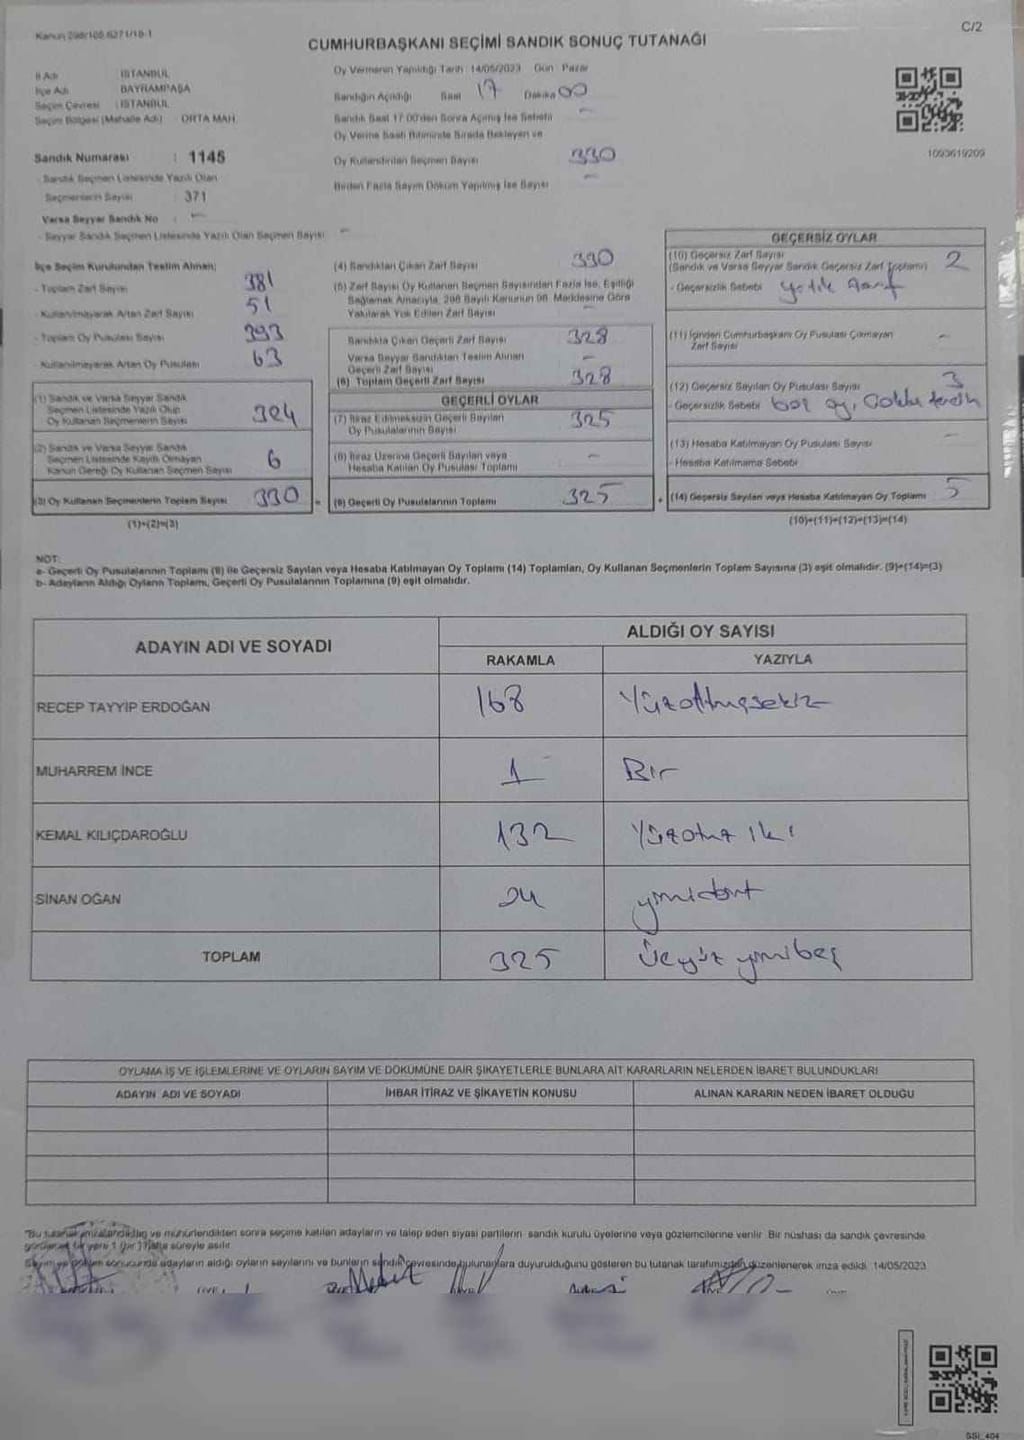 Kanun 298/105,6271/18-1
C/2
CUMHURBAŞKANI SEÇİMİ SANDIK SONUÇ TUTANAĞI
İl Adı : İSTANBUL
İlçe Adı : BAYRAMPAŞA
Seçim Çevresi : İSTANBUL
Seçim Bölgesi (Mahalle Adı) : ORTA MAH.
Sandık Numarası : 1145
- Sandık Seçmen Listesinde Yazılı Olan
Seçmenlerin Sayısı : 371
Varsa Seyyar Sandık No : -
- Seyyar Sandık Seçmen Listesinde Yazılı Olan Seçmen Sayısı -
Oy Vermenin Yapıldığı Tarih : 14/05/2023 Gün : Pazar
Sandığın Açıldığı Saat 17 Dakika 00
Sandık Saat 17:00'den Sonra Açılmış İse Sebebi -
Oy Verme Saati Bitiminde Sırada Bekleyen ve
Oy Kullandırılan Seçmen Sayısı 330
Birden Fazla Sayım Döküm Yapılmış İse Sayısı -
1093619209
İlçe Seçim Kurulundan Teslim Alınan;
- Toplam Zarf Sayısı 381
- Kullanılmayarak Artan Zarf Sayısı 51
- Toplam Oy Pusulası Sayısı 393
- Kullanılmayarak Artan Oy Pusulası 63
(1) Sandık ve Varsa Seyyar Sandık
Seçmen Listesinde Yazılı Olup
Oy Kullanan Seçmenlerin Sayısı 324
(2) Sandık ve Varsa Seyyar Sandık
Seçmen Listesinde Kayıtlı Olmayan
Kanun Gereği Oy Kullanan Seçmen Sayısı 6
(3) Oy Kullanan Seçmenlerin Toplam Sayısı 330
(1)+(2)=(3)
(4) Sandıktan Çıkan Zarf Sayısı 330
(5) Zarf Sayısı Oy Kullanan Seçmen Sayısından Fazla İse, Eşitliği
Sağlamak Amacıyla, 298 Sayılı Kanunun 98. Maddesine Göre
Yakılarak Yok Edilen Zarf Sayısı -
Sandıkta Çıkan Geçerli Zarf Sayısı 328
Varsa Seyyar Sandıktan Teslim Alınan
Geçerli Zarf Sayısı -
(6) Toplam Geçerli Zarf Sayısı 328
GEÇERLİ OYLAR
(7) İtiraz Edilmeksizin Geçerli Sayılan
Oy Pusulalarının Sayısı 325
(8) İtiraz Üzerine Geçerli Sayılan veya
Hesaba Katılan Oy Pusulası Toplamı -
= (9) Geçerli Oy Pusulalarının Toplamı 325
GEÇERSİZ OYLAR
(10) Geçersiz Zarf Sayısı
(Sandık ve Varsa Seyyar Sandık Geçersiz Zarf Toplamı) 2
- Geçersizlik Sebebi yırtık zarf
(11) İçinden Cumhurbaşkanı Oy Pusulası Çıkmayan
Zarf Sayısı -
(12) Geçersiz Sayılan Oy Pusulası Sayısı 3
- Geçersizlik Sebebi boş oy, Çoklu tercih
(13) Hesaba Katılmayan Oy Pusulası Sayısı -
- Hesaba Katılmama Sebebi
+ (14) Geçersiz Sayılan veya Hesaba Katılmayan Oy Toplamı 5
(10)+(11)+(12)+(13)=(14)
NOT:
a- Geçerli Oy Pusulalarının Toplamı (9) ile Geçersiz Sayılan veya Hesaba Katılmayan Oy Toplamı (14) Toplamları, Oy Kullanan Seçmenlerin Toplam Sayısına (3) eşit olmalıdır. (9)+(14)=(3)
b- Adayların Aldığı Oyların Toplamı, Geçerli Oy Pusulalarının Toplamına (9) eşit olmalıdır.
ADAYIN ADI VE SOYADI
ALDIĞI OY SAYISI
RAKAMLA YAZIYLA
RECEP TAYYİP ERDOĞAN 168 Yüzaltmışsekiz
MUHARREM İNCE 1 Bir
KEMAL KILIÇDAROĞLU 132 Yüzotuz iki
SİNAN OĞAN 24 yirmidört
TOPLAM 325 Üçyüz yirmibeş
OYLAMA İŞ VE İŞLEMLERİNE VE OYLARIN SAYIM VE DÖKÜMÜNE DAİR ŞİKAYETLERLE BUNLARA AİT KARARLARIN NELERDEN İBARET BULUNDUKLARI
ADAYIN ADI VE SOYADI İHBAR İTİRAZ VE ŞİKAYETİN KONUSU ALINAN KARARIN NEDEN İBARET OLDUĞU
"Bu tutanak imzalandıktan ve mühürlendikten sonra seçime katılan adayların ve talep eden siyasi partilerin sandık kurulu üyelerine veya gözlemcilerine verilir. Bir nüshası da sandık çevresinde
görülecek bir yere 1 (bir) hafta süreyle asılır.
Sayım ve döküm sonucunda adayların aldığı oyların sayılarını ve bunların sandık çevresinde bulunanlara duyurulduğunu gösteren bu tutanak tarafımızdan düzenlenerek imza edildi. 14/05/2023
SSİ_404